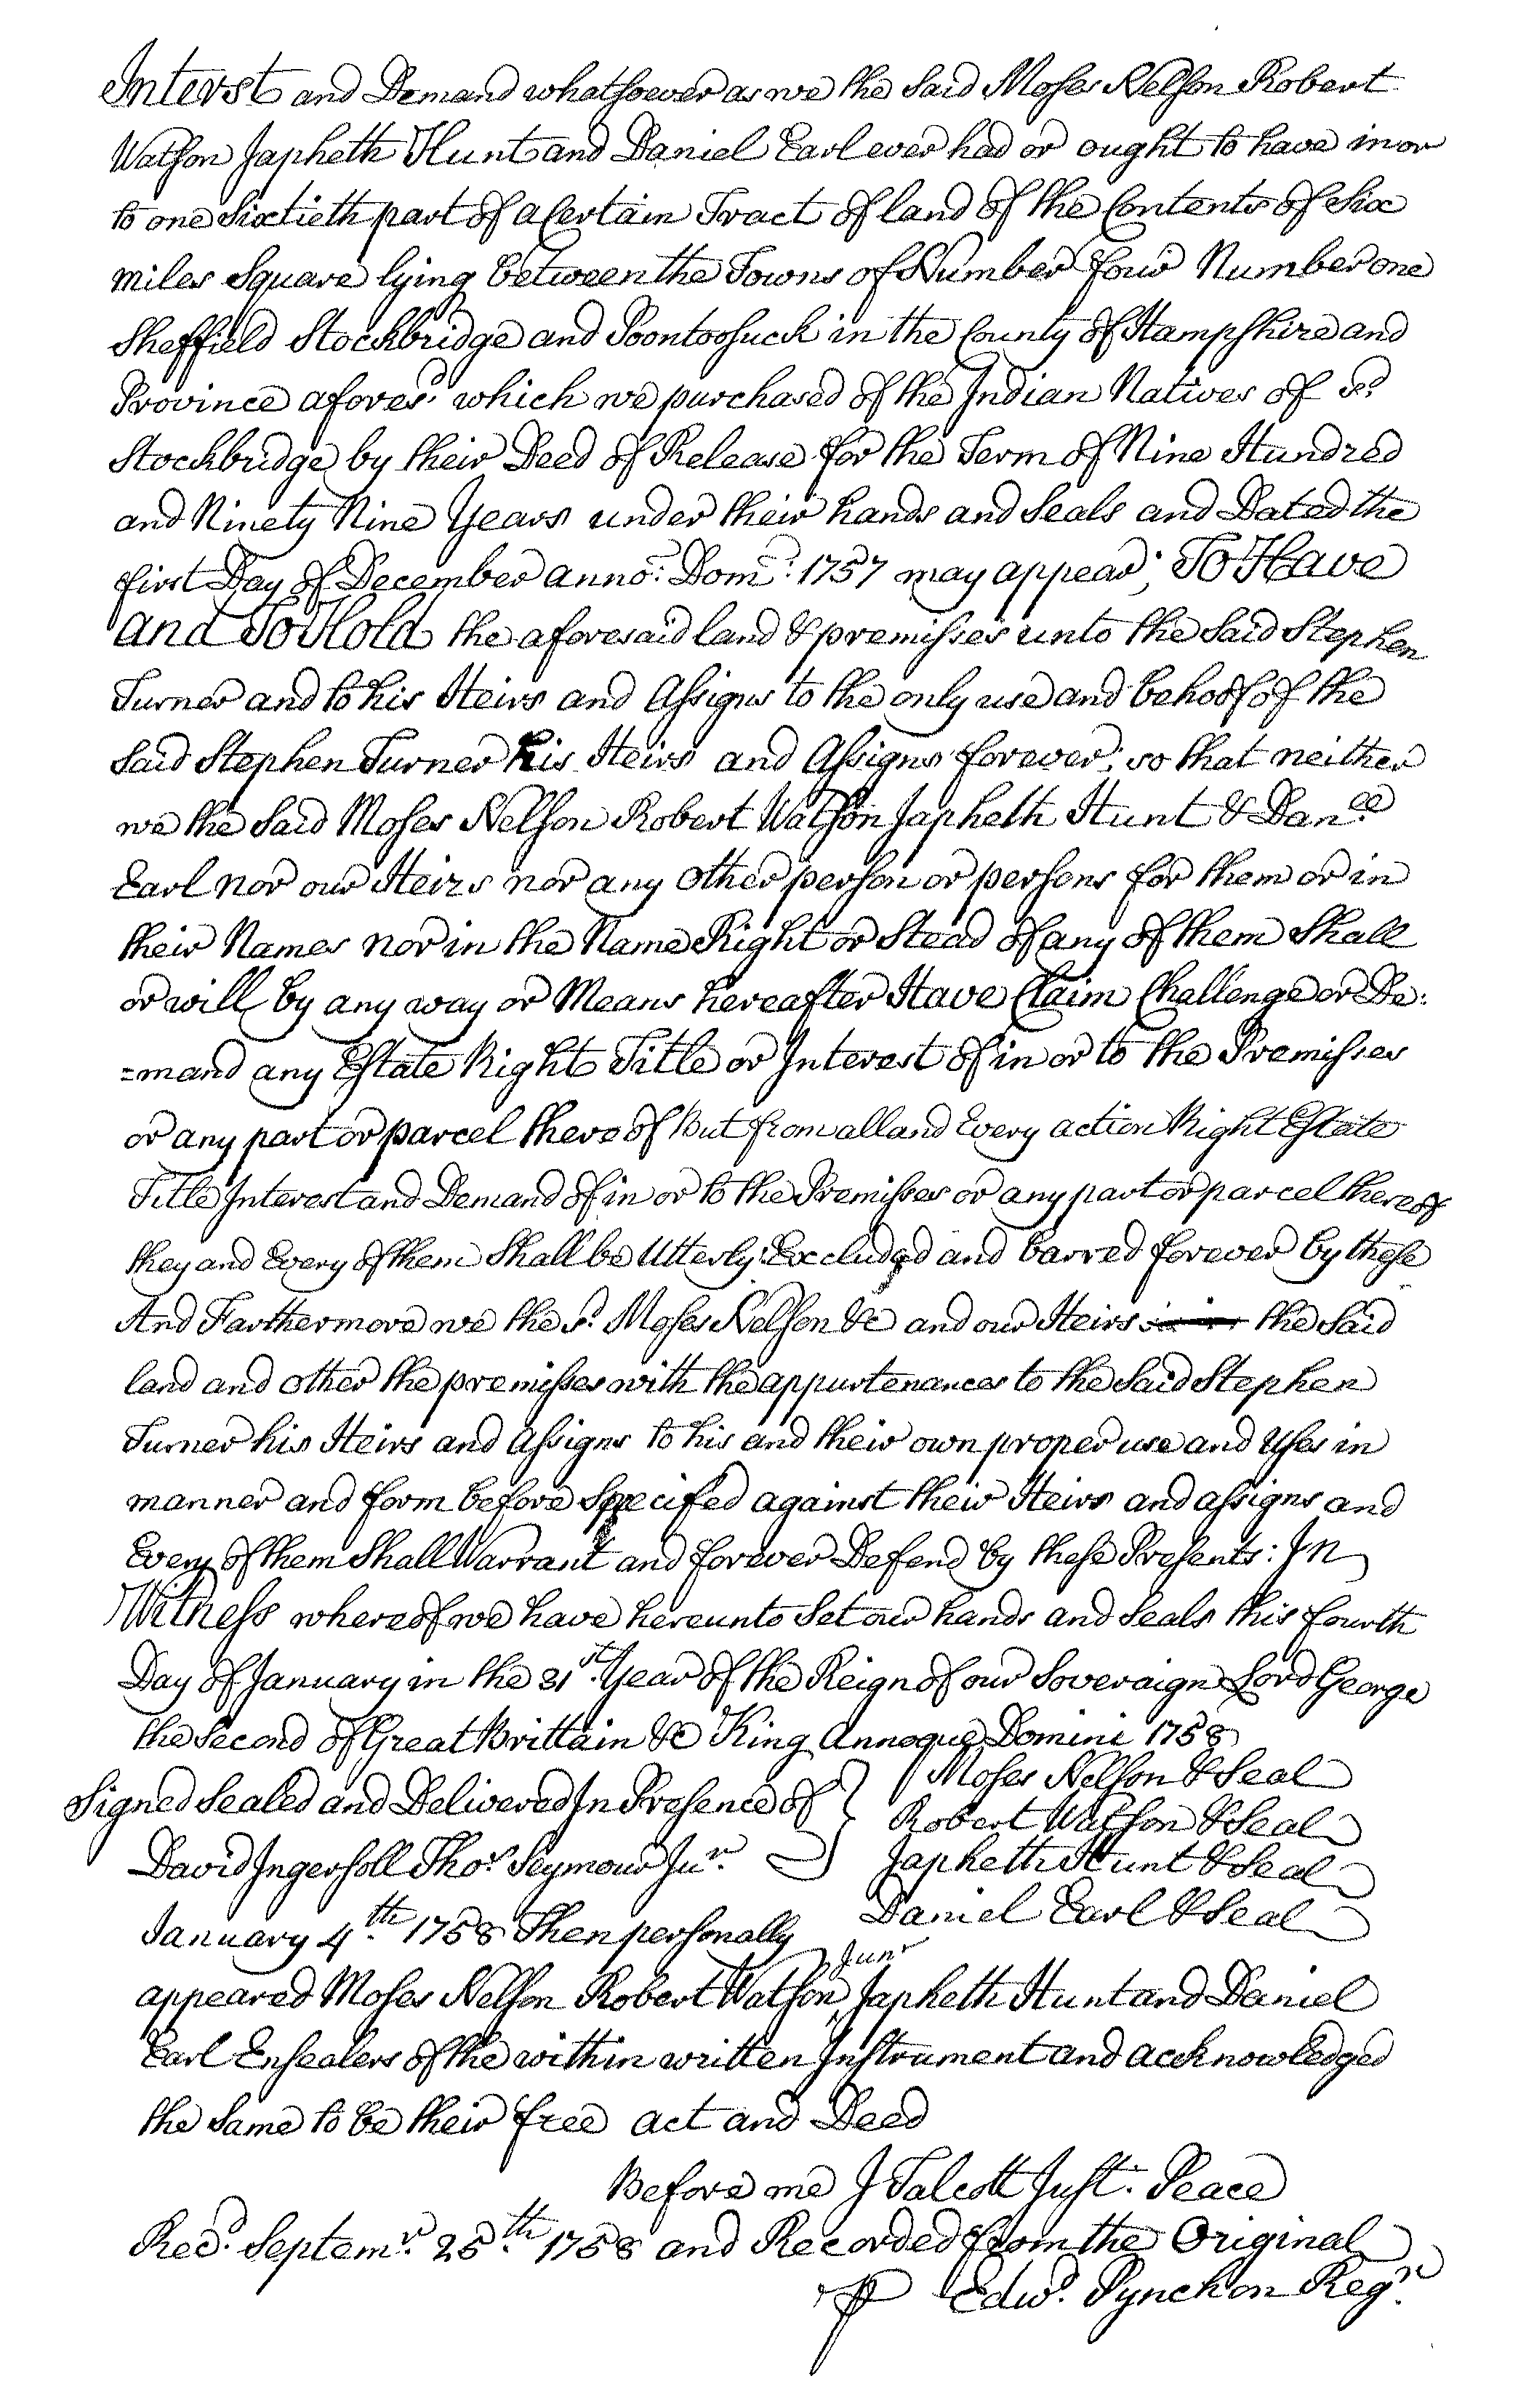 Interst and Demand whatsoever as we the Said Moses Nelson Robert
Watson Japheth Hunt and Daniel Earl ever had or ought to have in or
to one Sixtieth part of a Certain Tract of land of the Contents of Six
miles Square lying between the Towns of Number four Number one
Sheffield Stockbridge and Poontoosuck in the County of Hampshire and
Province afores.d which we purchased of the Indian Natives of s.d
Stockbridge by their Deed of Release for the Term of Nine Hundred
and Ninety Nine Years under their hands and Seals and Dated the
first Day of December anno: Dom: 1757 may appear; To Have
and To Hold the aforesaid land & premisses unto the Said Stephen
Turner and to his Heirs and Assigns to the only use and behoof of the
Said Stephen Turner his Heirs and Assigns forever; so that neither
we the Said Moses Nelson Robert Watson Japheth Hunt & Dan.ll
Earl nor our Heirs nor any other person or persons for them or in
their Names nor in the Name Right or Stead of any of them Shall
or will by any way or Means hereafter Have Claim Challenge or De:
=mand any Estate Right Title or Interest of in or to the Premisses
or any part or parcel there of But from all and Every action Right Estate
Title Interest and Demand of in or to the Premisses or any part or parcel thereof
they and Every of them Shall be Utterly Excluded and barred forever by these
And Farthermore we the s.d Moses Nelson &c and our Heirs the Said
land and other the premisses with the appurtenances to the Said Stephen
Turner his Heirs and Assigns to his and their own proper use and Uses in
manner and form before Specifed against their Heirs and assigns and
Every of them Shall Warrant and forever Defend by these Presents: In
Witness whereof we have hereunto Set our hands and Seals this fourth
Day of January in the 31st. Year of the Reign of our Soveraign Lord George
the Second of Great Brittain &c King Annoque Domini 1758
Signed Sealed and Delivered In Presence of } Moses Nelson & Seal
Robert Watson & Seal
David Ingersoll Thos. Seymour Junr. Japheth Hunt & Seal
Daniel Earl & Seal
January 4th. 1758 Then personally
appeared Moses Nelson Robert Watson Junr Japheth Hunt and Daniel
Earl Ensealers of the within written Instrument and acknowledged
the Same to be their free act and Deed
Before me J Talcott Just. Peace
Recd. Septemr. 25th. 1758 and Recorded from the Original
P Edwd. Pynchon Regr.